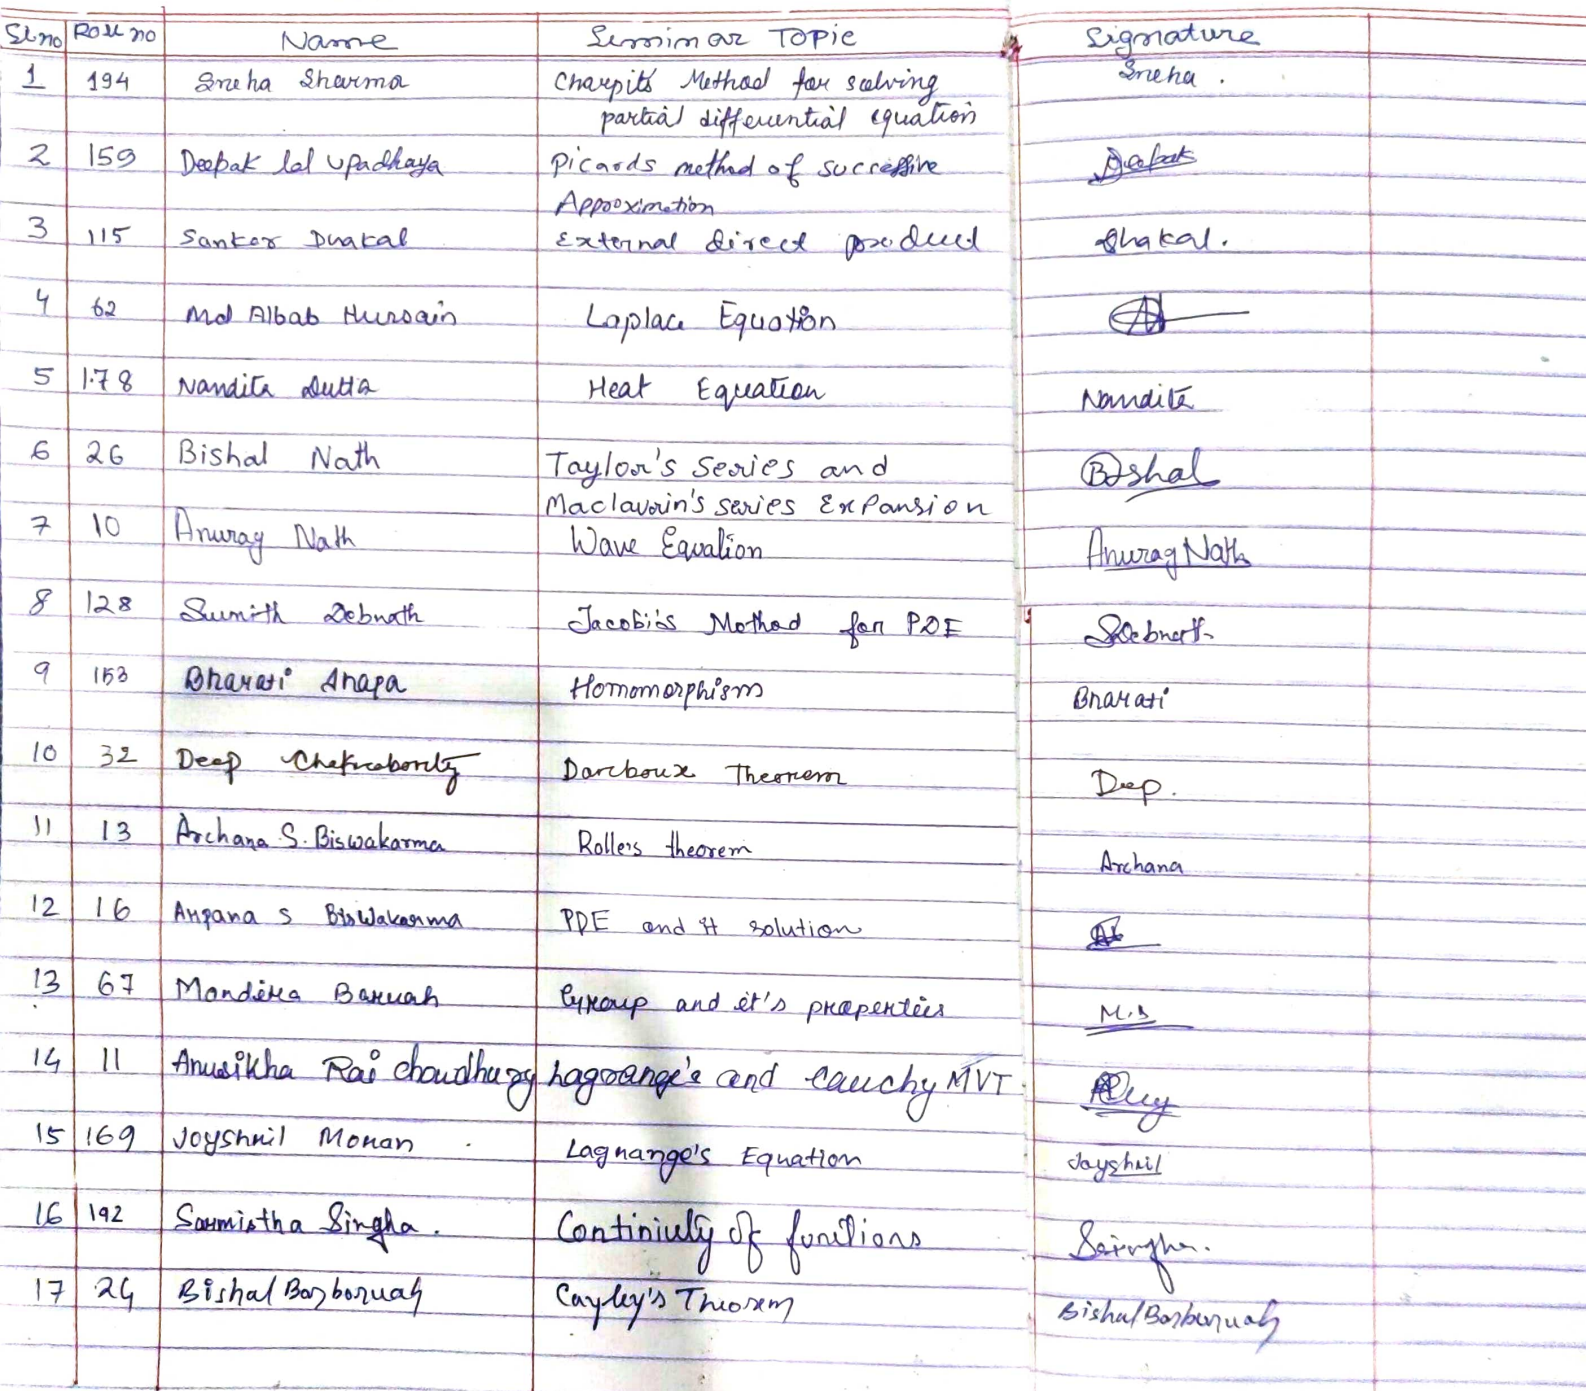 Sl.no Roll no Name Seminar Topic Signature
1 194 Sneha Sharma Charpit's Method for solving Sneha.
partial differential equation
2 159 Deepak lal Upadhaya Picards method of successive Deepak
Approximation
3 115 Sankar Dhakal External direct product Dhakal.
4 62 Md Albab Hussain Laplace Equation
5 178 Nandita Dutta Heat Equation Nandita
6 26 Bishal Nath Taylor's Series and Bishal
Maclaurin's series Expansion
7 10 Anurag Nath Wave Equation Anurag Nath
8 128 Sumith Debnath Jacobi's Method for PDE SDebnath
9 153 Bharati Ahapa Homomorphism Bharati
10 32 Deep Chakraborty Darboux Theorem Deep.
11 13 Archana S. Biswakarma Rolle's theorem Archana
12 16 Arpana S Biswakarma PDE and it solution
13 67 Mondira Baruah Group and it's properties M.B
14 11 Anusikha Rai Choudhury Lagrange's and Cauchy MVT
15 169 Joyshril Moran Lagrange's Equation Joyshril
16 192 Sarmistha Singha. Continiuty of funitions Ssingha.
17 24 Bishal Borboruah Cayley's Theorem Bishal Borboruah